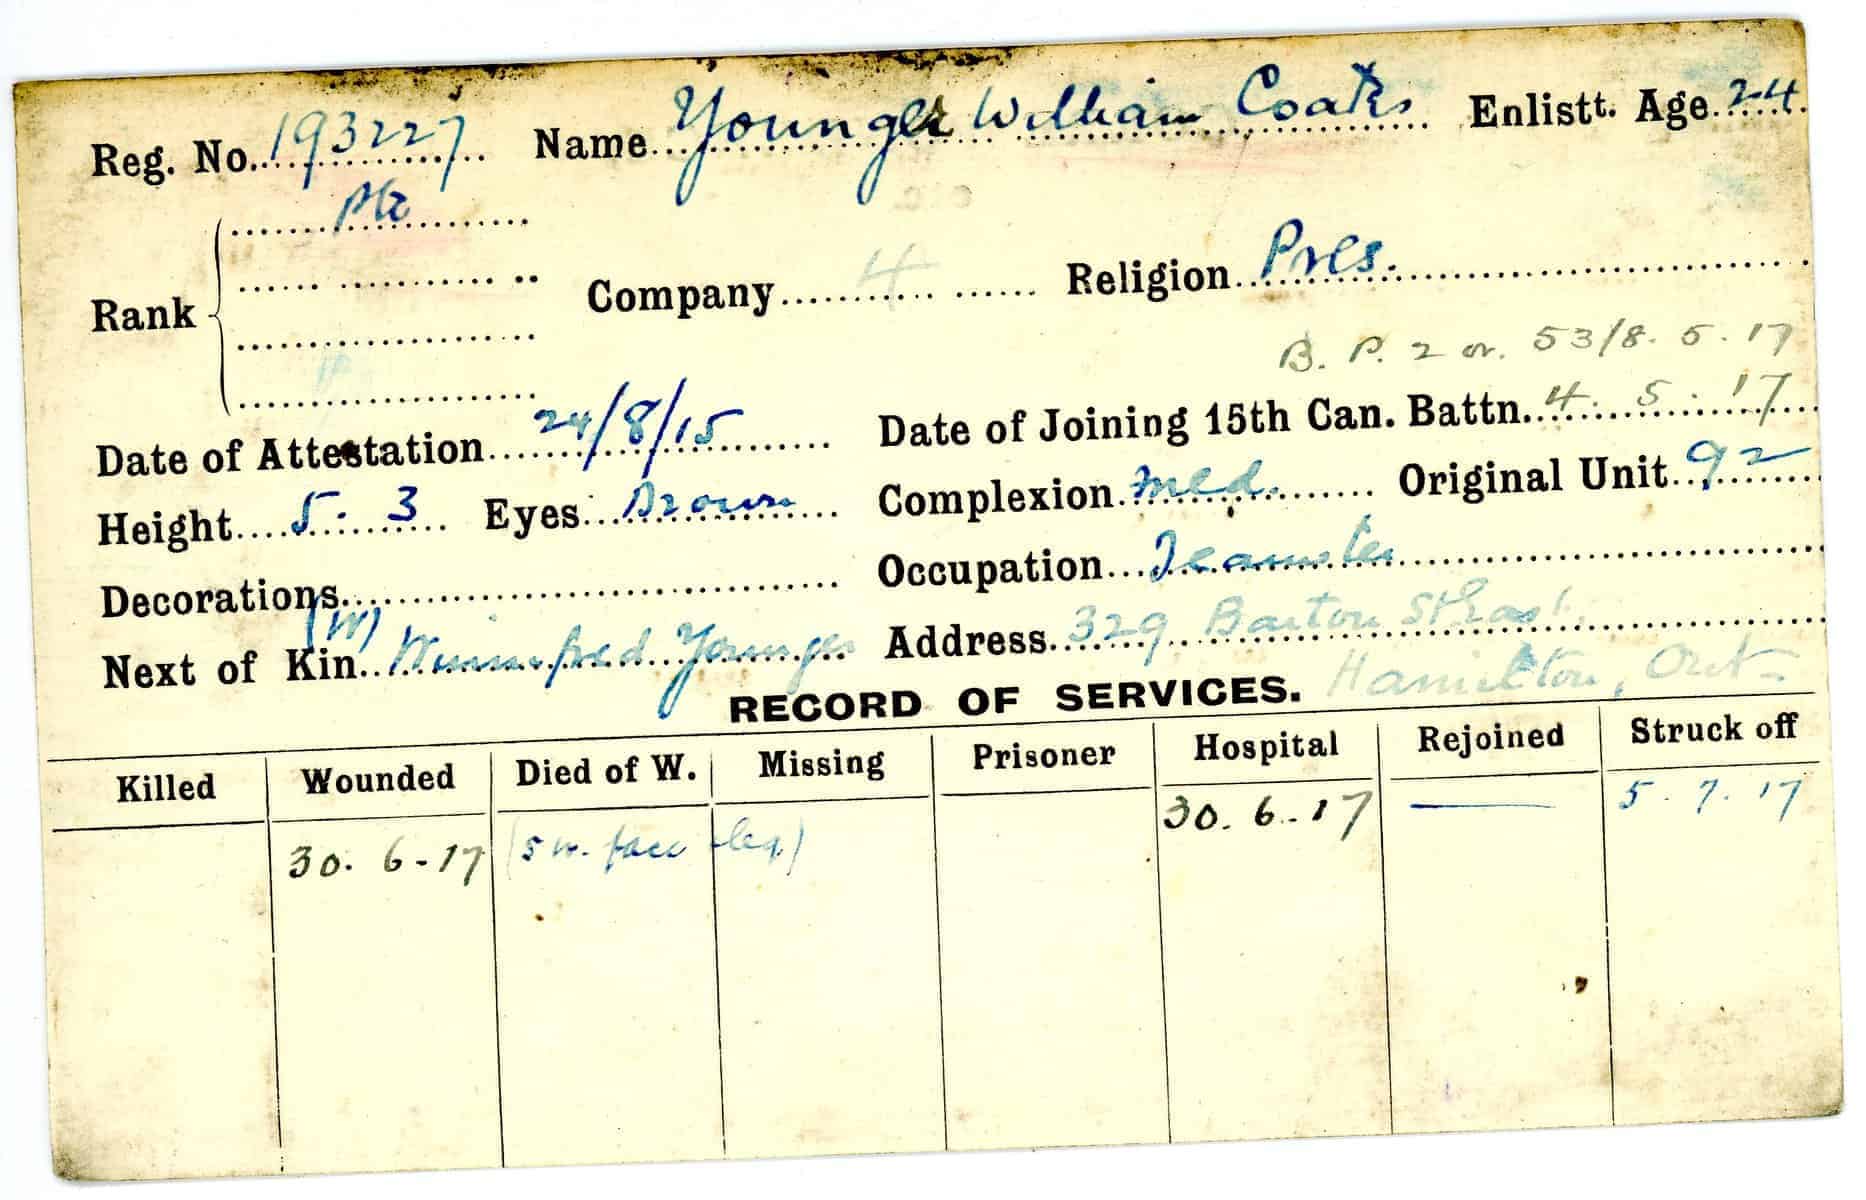 Reg. No. 193227 Name Younger William Coates Enlistt. Age 24.
Pte
Rank Company 4 Religion Pres.
B. P. 2 or. 53/8. 5. 17
Date of Attestation 24/8/15 Date of Joining 15th Can. Battn. 4. 5. 17
Height 5. 3 Eyes Brown Complexion Med. Original Unit 92
Decorations Occupation Teamster
(W)
Next of Kin Winnifred Younger Address 329 Barton St East
Hamilton, Ont
RECORD OF SERVICES.
Killed Wounded Died of W. Missing Prisoner Hospital Rejoined Struck off
30. 6-17 (S w. face leg) 30. 6. 17 — 5. 7. 17